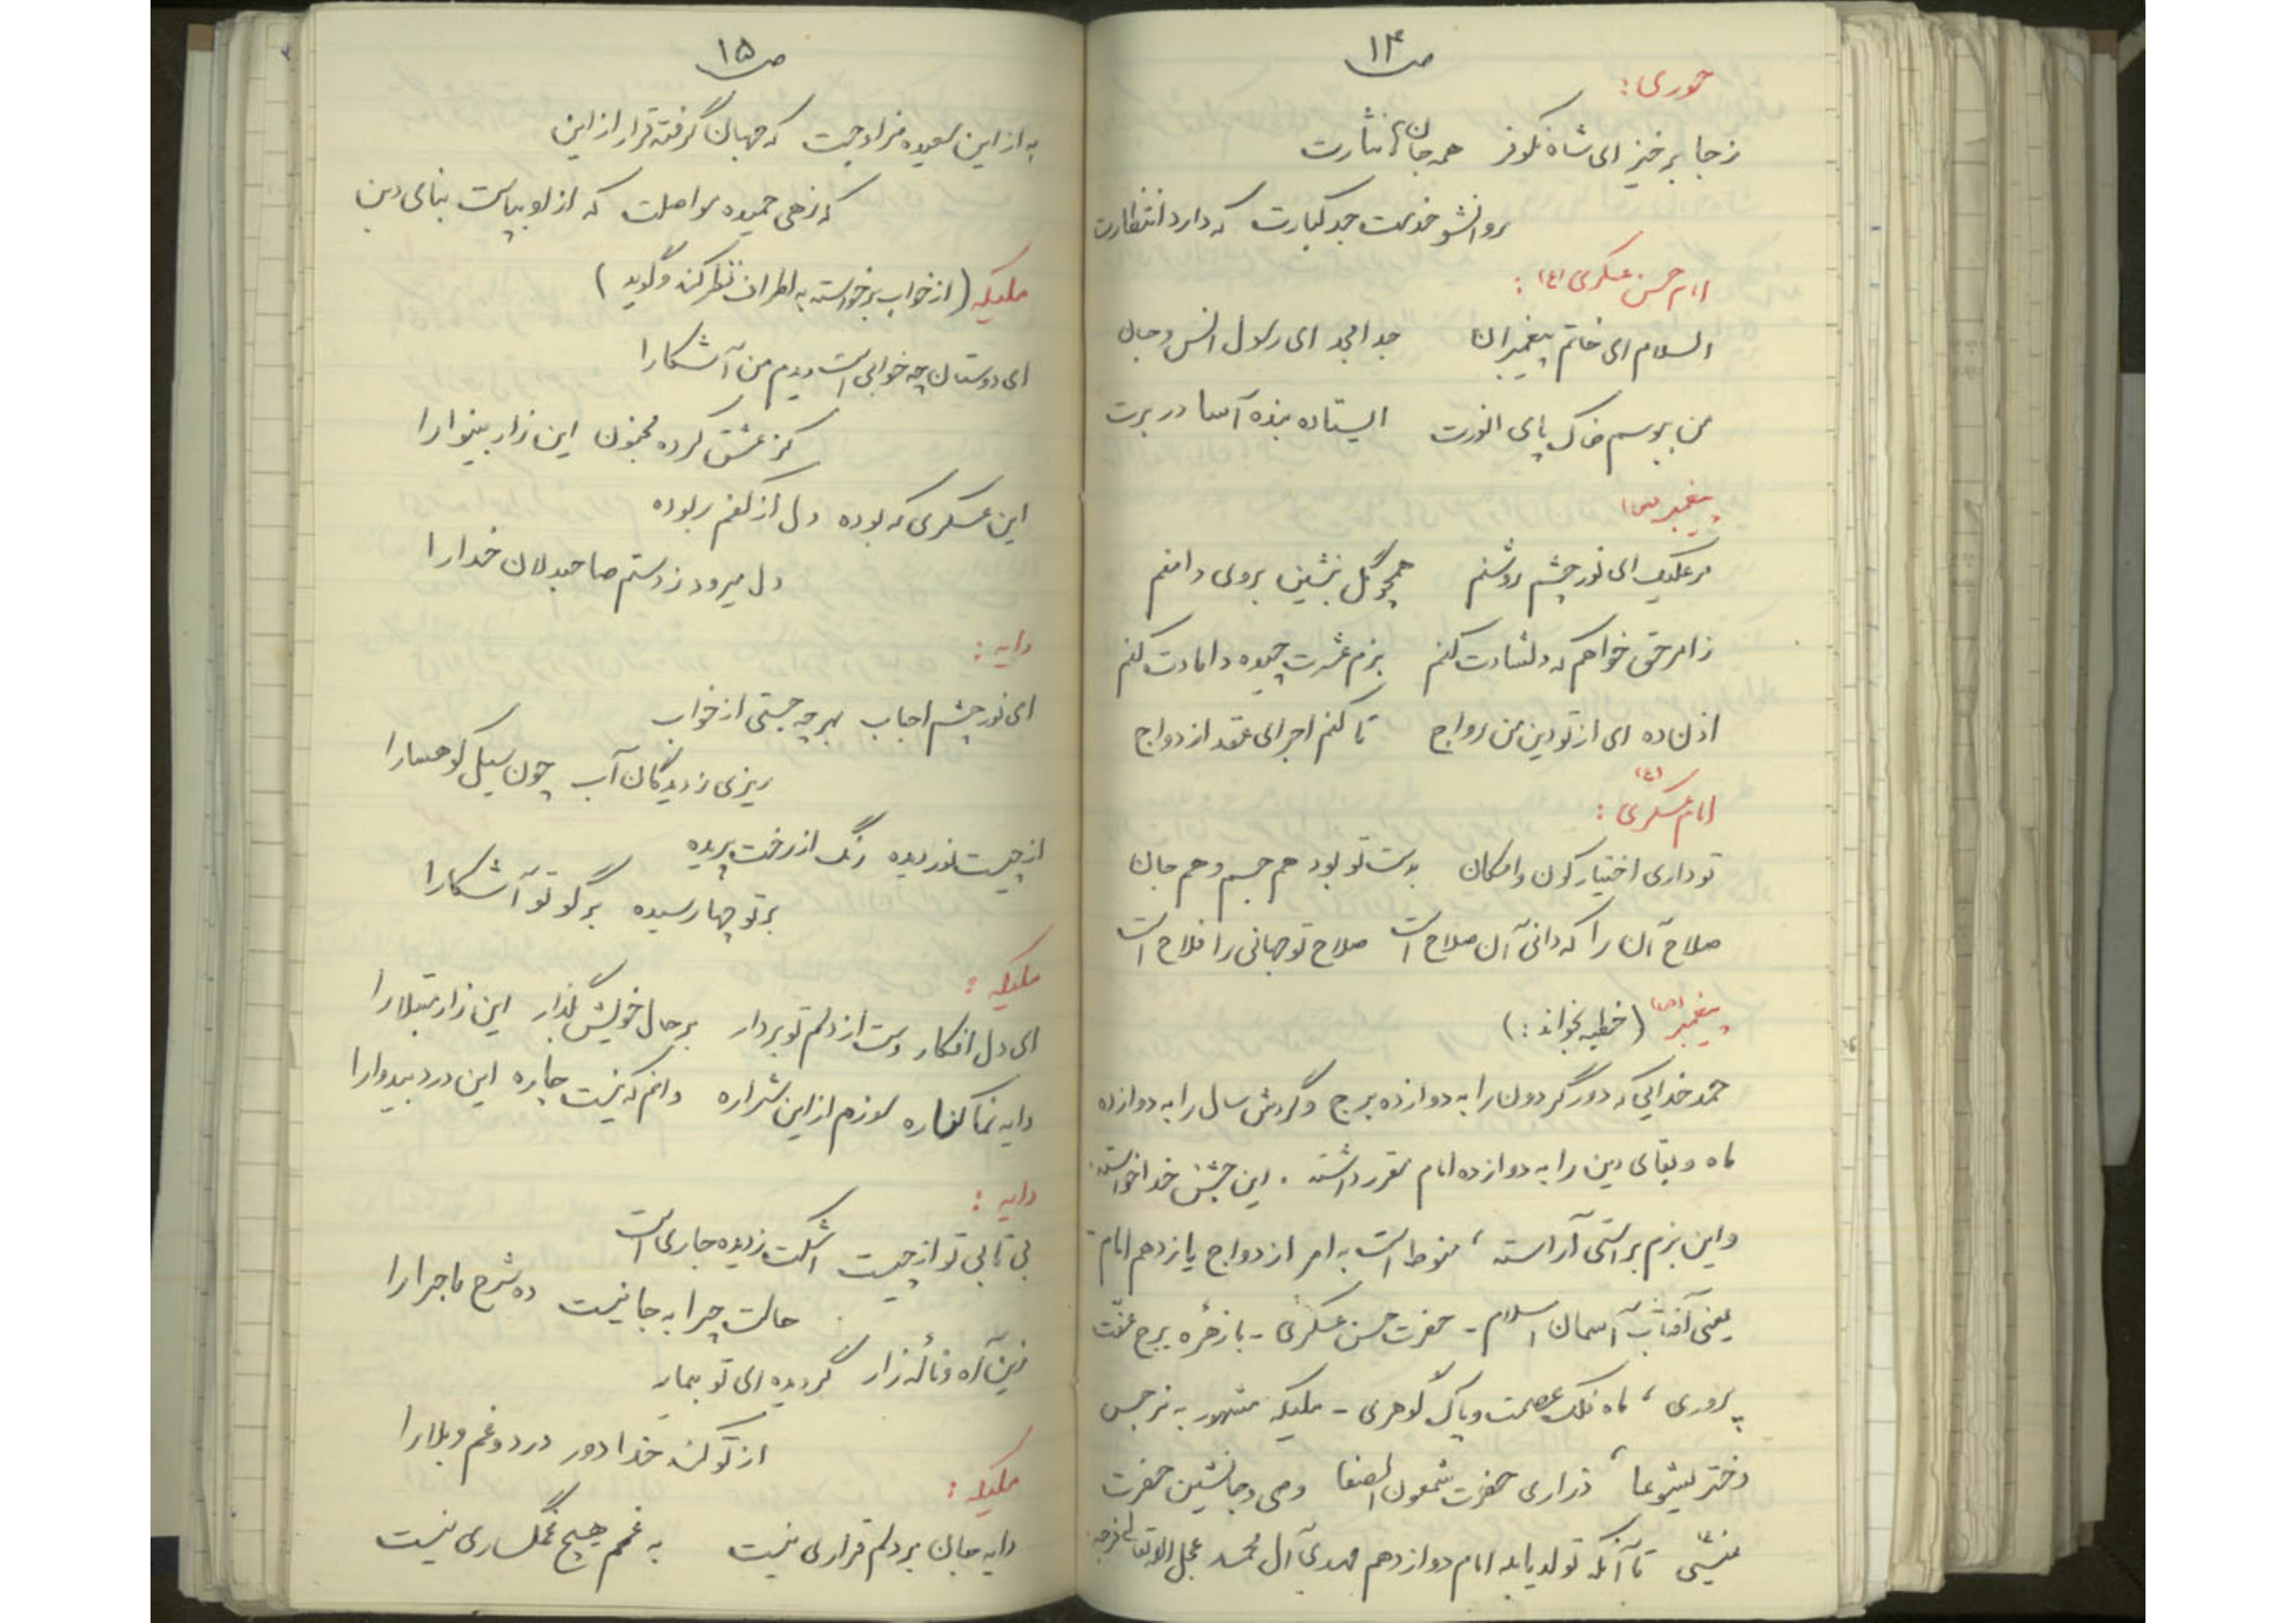 ص ۱۴
حوری:
ز جا برخیز ای شاه نکوفر همه جانها نثارت
روانشو خدمت جد کبارت که دارد انتظارت
امام حسن عسکری (ع):
السلام ای خاتم پیغمبران جد امجد ای رسول انس و جان
من ببوسم خاک پای انورت ایستاده بنده آسا در برت
پیغمبر (ص)
بر علیک ای نور چشم روشنم همچو گل بنشین بروی دامنم
ز امر حق خواهم که دلشادت کنم بزم عشرت چیده دامادت کنم
اذن ده ای از تو دین من رواج تا کنم اجرای عقد ازدواج
امام عسکری (ع):
تو داری اختیار کون و امکان بدست تو بود هم جسم و هم جان
صلاح آن را که دانی آن صلاح است صلاح تو جهانی را فلاح است
پیغمبر (ص) (خطبه بخواند:)
حمد خدایی که دور گردون را به دوازده برج و گردش سال را به دوازده
ماه و بقای دین را به دوازده امام مقرر داشته. این جشن خداخواسته
و این بزم براستی آراسته، منوط است به امر ازدواج یازدهم امام
یعنی آفتاب آسمان اسلام - حضرت حسن عسکری - با زهره برج عفت
پروری، ماه فلک عصمت و پاک گوهری - ملیکه مشهور به نرجس
دختر یشوعا، ذراری حضرت شمعون الصفا وصی و جانشین حضرت
(ع) تا آنکه تولد یابد امام دوازدهم مهدی آل محمد عجل الله تعالی فرجه
ص ۱۵
به از این سعیده مزاوجت که جهان گرفته قرار از این
که زهی حمیده مواصلت که از او بپاست بنای دین
ملیکه (از خواب برخواسته به اطراف نظر کند و گوید)
ای دوستان چه خوابی است دیدم من آشکارا
کز عشق کرده مجنون این زار بینوا را
این عسکری که بوده دل از کفم ربوده
دل میرود ز دستم صاحبدلان خدا را
دایه:
ای نور چشم احباب بهر چه جستی از خواب
ریزی ز دیدگان آب چون سیل کوهسارا
از چیست نور دیده رنگ از رخت پریده
بر تو چها رسیده برگو تو آشکارا
ملیکه:
ای دل افکار دست از دلم تو بردار بر حال خویش بگذار این زار مبتلا را
دایه نما کناره سوزم از این شراره دانم که نیست چاره این درد بیدوا را
دایه:
بی تابی تو از چیست اشکت ز دیده جاری است
حالت چرا به جا نیست ده شرح ماجرا را
زین آه و ناله زار گردیده ای تو بیمار
از تو کند خدا دور درد و غم و بلا را
ملیکه:
دایه جان بر دلم قراری نیست به غمم هیچ غمگساری نیست